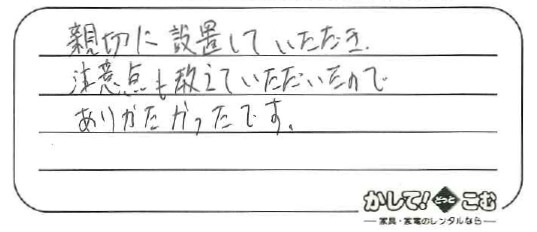 親切に設置していただき、
注意点も教えていただいたので
ありがたかったです。
かして!どっとこむ
家具・家電のレンタルなら